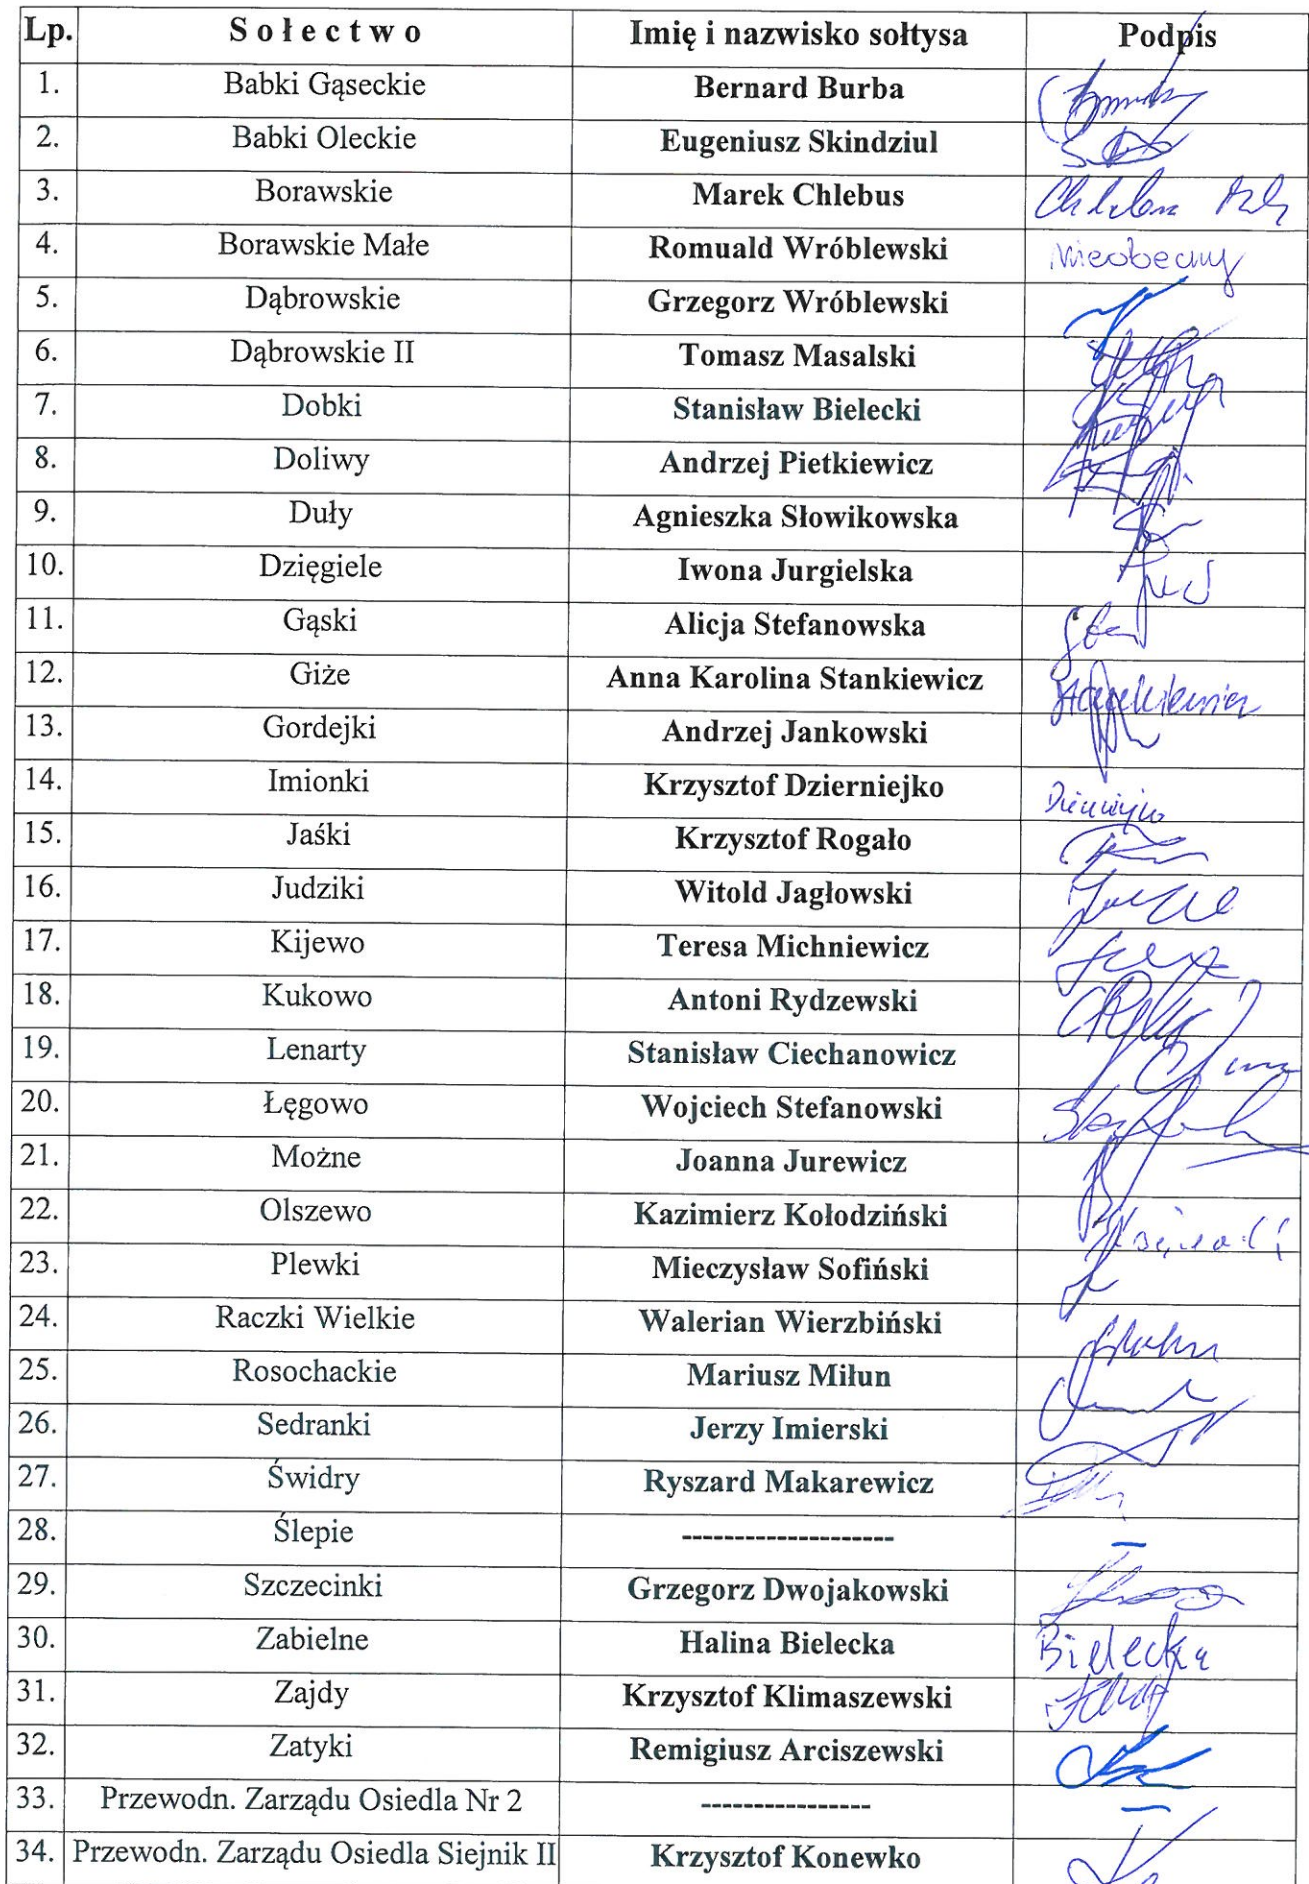 Lp. Sołectwo Imię i nazwisko sołtysa Podpis
1. Babki Gąseckie Bernard Burba
2. Babki Oleckie Eugeniusz Skindziul
3. Borawskie Marek Chlebus
4. Borawskie Małe Romuald Wróblewski Nieobecny
5. Dąbrowskie Grzegorz Wróblewski
6. Dąbrowskie II Tomasz Masalski
7. Dobki Stanisław Bielecki
8. Doliwy Andrzej Pietkiewicz
9. Duły Agnieszka Słowikowska
10. Dzięgiele Iwona Jurgielska
11. Gąski Alicja Stefanowska
12. Giże Anna Karolina Stankiewicz
13. Gordejki Andrzej Jankowski
14. Imionki Krzysztof Dzierniejko
15. Jaśki Krzysztof Rogało
16. Judziki Witold Jagłowski
17. Kijewo Teresa Michniewicz
18. Kukowo Antoni Rydzewski
19. Lenarty Stanisław Ciechanowicz
20. Łęgowo Wojciech Stefanowski
21. Możne Joanna Jurewicz
22. Olszewo Kazimierz Kołodziński
23. Plewki Mieczysław Sofiński
24. Raczki Wielkie Walerian Wierzbiński
25. Rosochackie Mariusz Miłun
26. Sedranki Jerzy Imierski
27. Świdry Ryszard Makarewicz
28. Ślepie -------------------- –
29. Szczecinki Grzegorz Dwojakowski
30. Zabielne Halina Bielecka Bielecka
31. Zajdy Krzysztof Klimaszewski
32. Zatyki Remigiusz Arciszewski
33. Przewodn. Zarządu Osiedla Nr 2 ---------------- –
34. Przewodn. Zarządu Osiedla Siejnik II Krzysztof Konewko